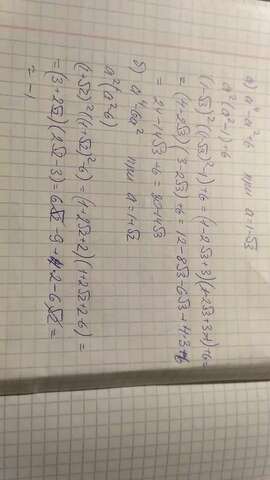 а) a⁴-a²+6 при a=1-√3
a²(a²-1)+6
(1-√3)²((1-√3)²-1)+6=(1-2√3+3)(1-2√3+3-1)+6=
=(4-2√3)(3-2√3)+6=12-8√3-6√3+4·3+6
=24-14√3+6=30-14√3
б) a⁴-6a² при a=1+√2
a²(a²-6)
(1+√2)²((1+√2)²-6)=(1+2√2+2)(1+2√2+2-6)=
=(3+2√2)(2√2-3)=6√2-9+4·2-6√2=
=-1